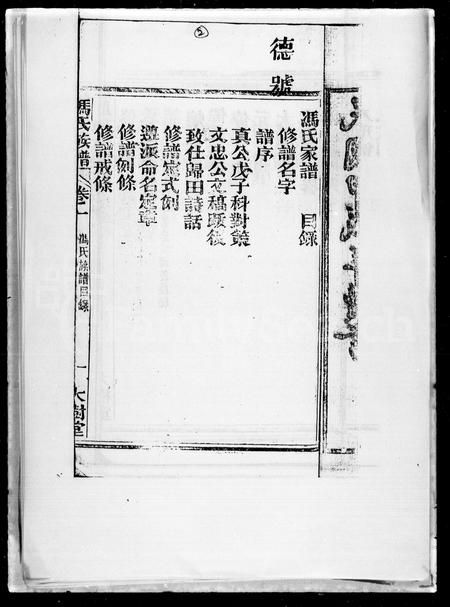 ②
德號
馮氏家譜 目錄
修譜名字
譜序
真公戊子科對策
文忠公文稿跋後
致仕歸田詩話
修譜定式刻
遵派命名定章
修譜刻條
修譜戒條
馮氏族譜 卷一 馮氏族譜目錄 一 大樹堂